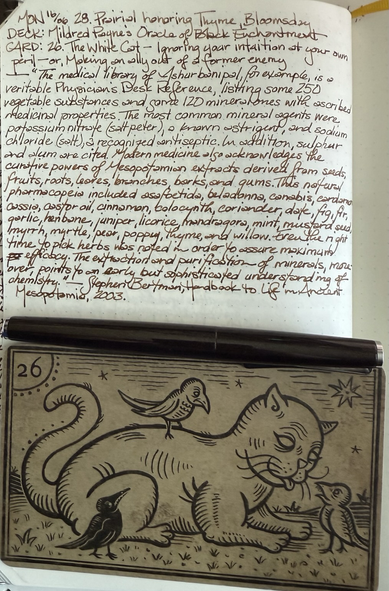 MON 16/06 28. Prairial honoring Thyme, Bloomsday
DECK: Mildred Payne's Oracle of Black Enchantment
CARD: 26. The White Cat - Ignoring your intuition at your own
peril - or, Making an ally out of a former enemy
"The medical library of Ashurbanipal, for example, is a
veritable Physicians Desk Reference, listing some 250
vegetable substances and some 120 mineral ones with ascribed
medicinal properties. The most common mineral agents were
potassium nitrate (saltpeter), a known astrigent, and sodium
chloride (salt), a recognised antiseptic. In addition, sulphur
and alum are cited. Modern medicine also acknowledges the
curative powers of Mesopotamian extracts derived from seeds,
fruits, roots, leaves, branches, barks, and gums. This natural
pharmacopeia included asafoetida, belladonna, canabis, cardamom
cassia, castor oil, cinnamon, colocynth, coriander, date, fig, fir,
garlic, henbane, juniper, licorice, mandragora, mint, mustard seed
myrrh, myrtle, pear, poppy, thyme, and willow. Even the right
time to pick herbs was noted in order to assure maximum
efficacy. The extraction and purification of minerals, more-
over, points to an early but sophisticated understanding of
chemistry." - Stephen Bertman, Handbook to Life in Ancient
Mesopotamia, 2003.
26